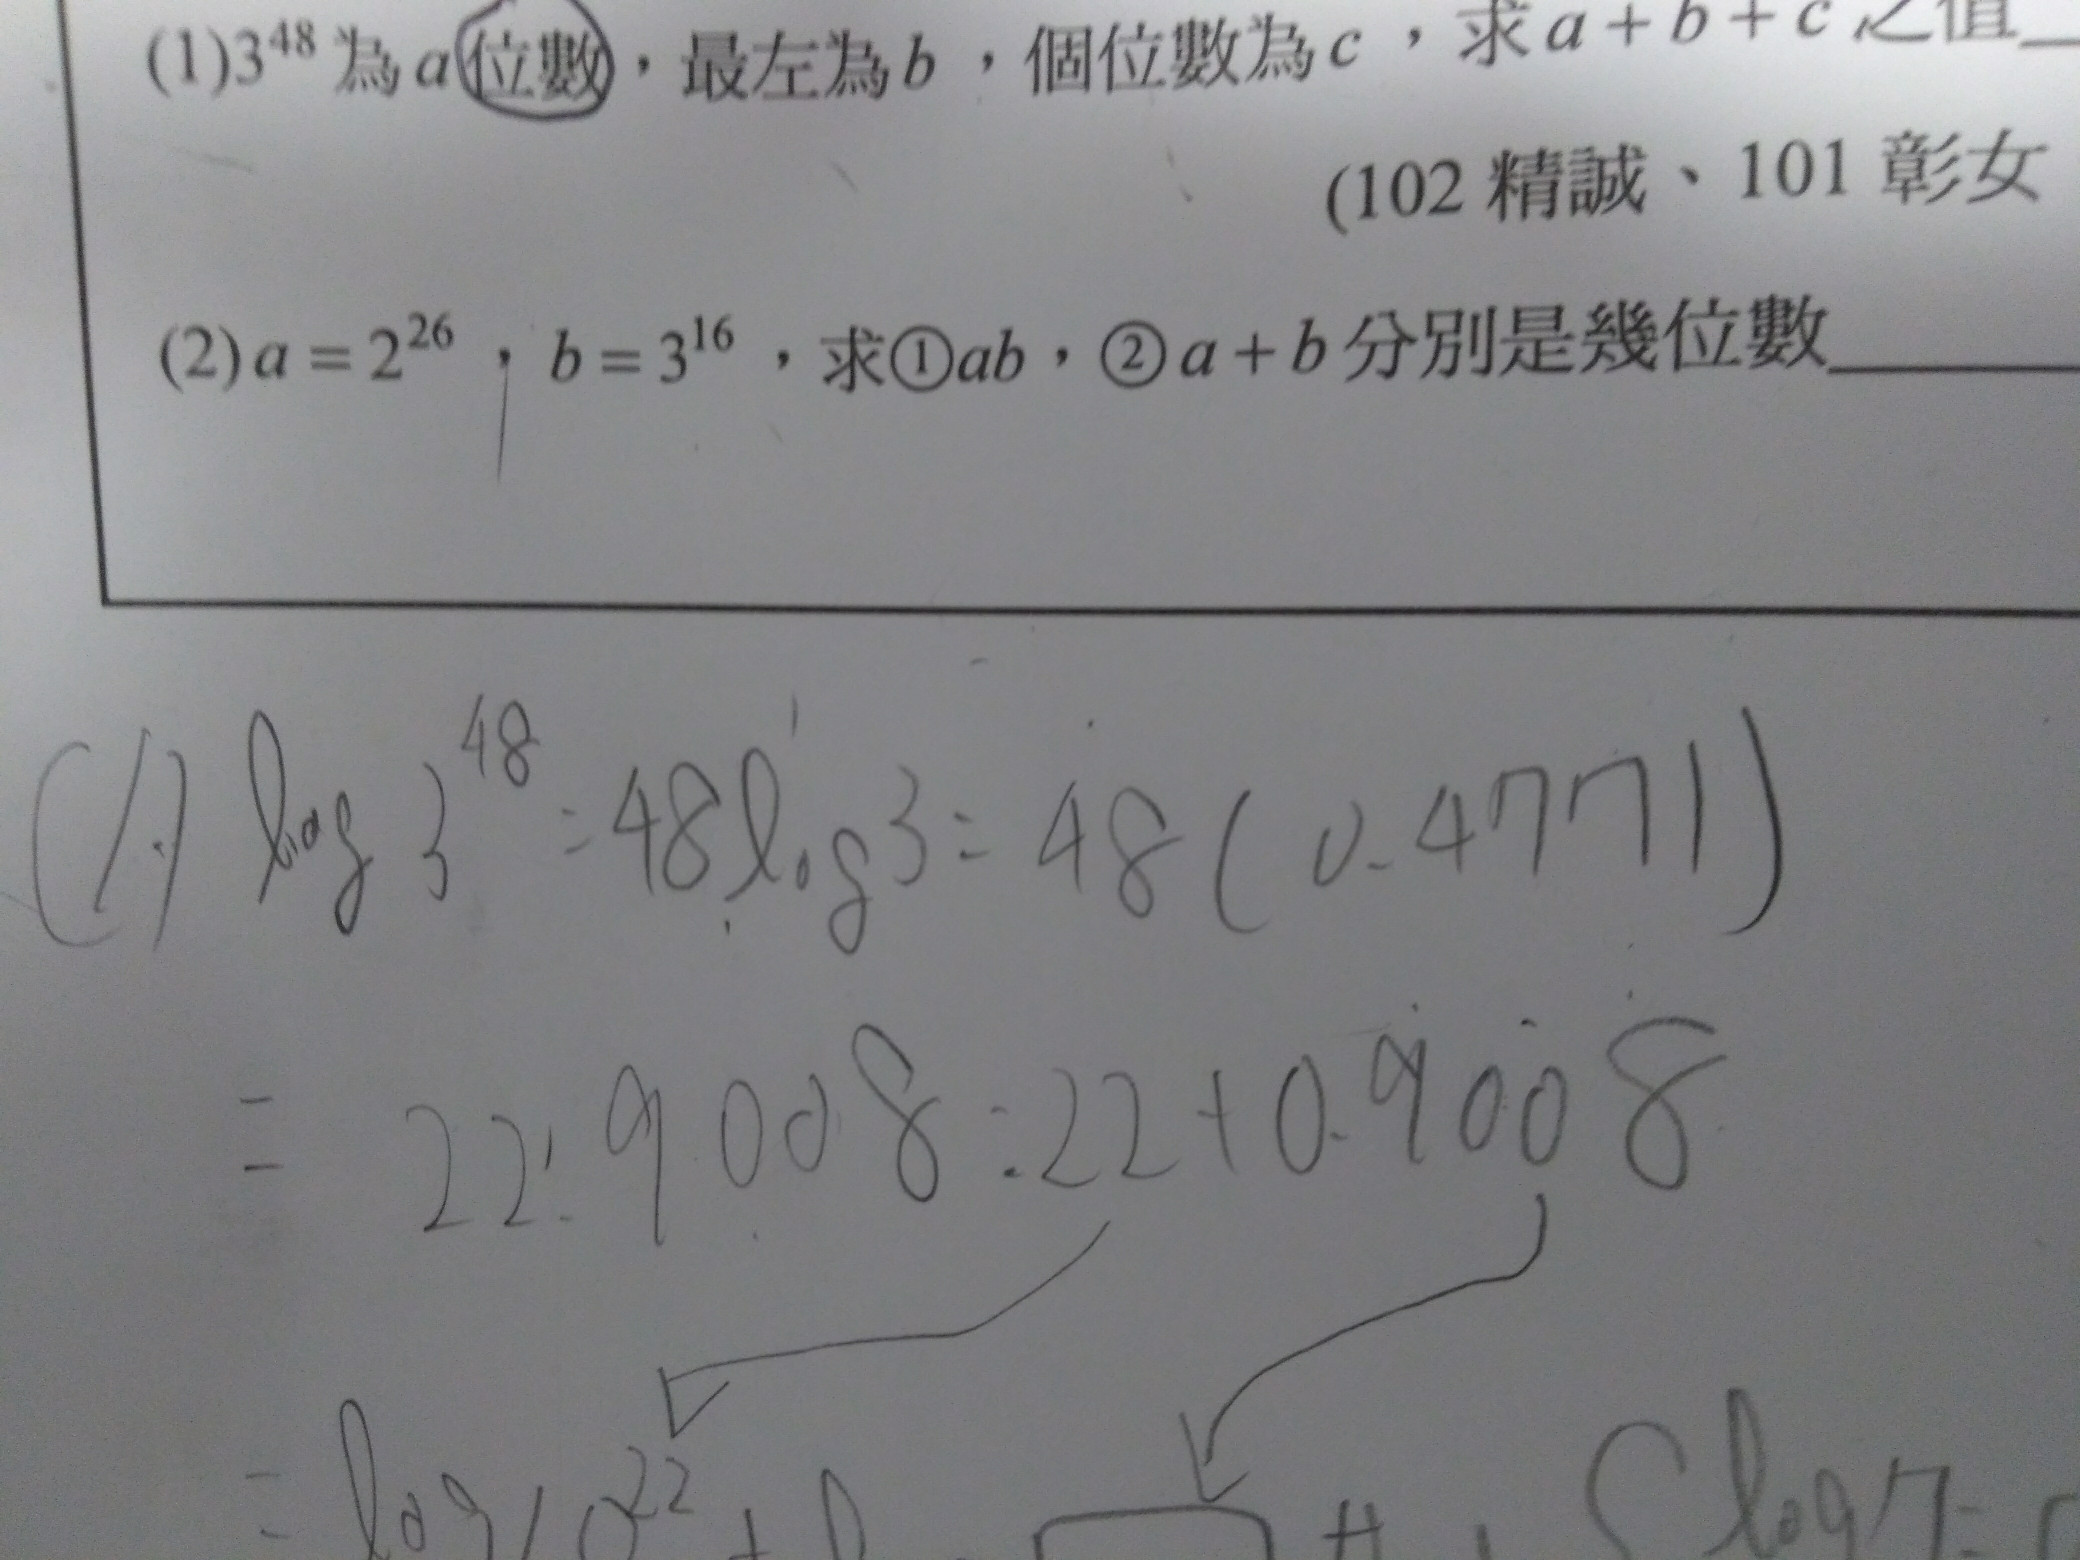 (1)3^48 為 a 位數，最左為 b ，個位數為 c ，求 a + b + c 之值
(102 精誠、101 彰女
(2) a = 2^26 ， b = 3^16 ，求①ab，② a + b 分別是幾位數
(1) log 3^48 = 48 log 3 = 48 ( 0.4771 )
= 22.9008 = 22 + 0.9008
= log 10^22 +
log 7 =